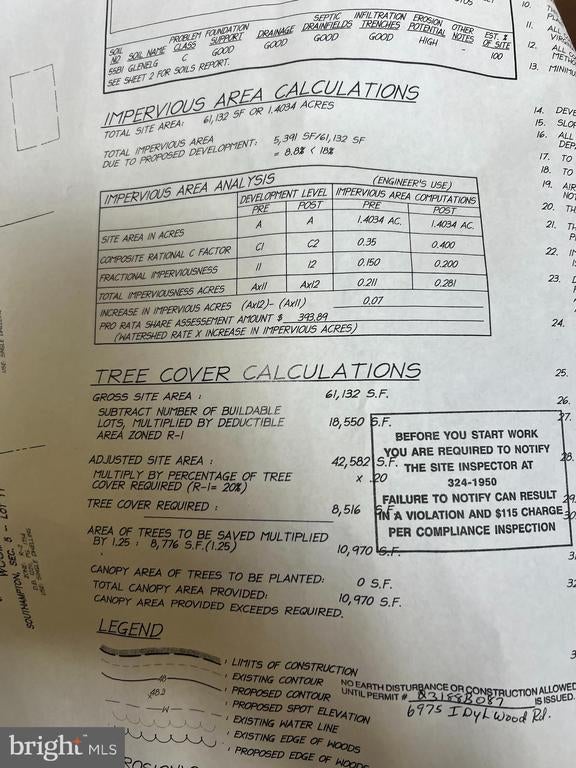 SOIL NO SOIL NAME PROBLEM CLASS FOUNDATION SUPPORT DRAINAGE SEPTIC DRAINFIELDS INFILTRATION TRENCHES EROSION POTENTIAL OTHER NOTES EST. % OF SITE
55B1 GLENELG C GOOD GOOD GOOD GOOD HIGH - 100
SEE SHEET 2 FOR SOILS REPORT.
IMPERVIOUS AREA CALCULATIONS
TOTAL SITE AREA: 61,132 SF OR 1.4034 ACRES
TOTAL IMPERVIOUS AREA
DUE TO PROPOSED DEVELOPMENT: 5,391 SF/61,132 SF
= 8.8% < 18%
IMPERVIOUS AREA ANALYSIS (ENGINEER'S USE)
DEVELOPMENT LEVEL IMPERVIOUS AREA COMPUTATIONS
PRE POST PRE POST
SITE AREA IN ACRES A A 1.4034 AC. 1.4034 AC.
COMPOSITE RATIONAL C FACTOR C1 C2 0.35 0.400
FRACTIONAL IMPERVIOUSNESS I1 I2 0.150 0.200
TOTAL IMPERVIOUSNESS ACRES AxI1 AxI2 0.211 0.281
INCREASE IN IMPERVIOUS ACRES (AxI2)- (AxI1) 0.07
PRO RATA SHARE ASSESSEMENT AMOUNT $ 393.89
(WATERSHED RATE X INCREASE IN IMPERVIOUS ACRES)
TREE COVER CALCULATIONS
GROSS SITE AREA : 61,132 S.F.
SUBTRACT NUMBER OF BUILDABLE
LOTS, MULTIPLIED BY DEDUCTIBLE 18,550 S.F.
AREA ZONED R-1
ADJUSTED SITE AREA : 42,582 S.F.
MULTIPLY BY PERCENTAGE OF TREE x .20
COVER REQUIRED (R-1= 20%)
TREE COVER REQUIRED : 8,516 S.F.
AREA OF TREES TO BE SAVED MULTIPLIED
BY 1.25 : 8,776 S.F.(1.25) 10,970 S.F.
CANOPY AREA OF TREES TO BE PLANTED: 0 S.F.
TOTAL CANOPY AREA PROVIDED: 10,970 S.F.
CANOPY AREA PROVIDED EXCEEDS REQUIRED.
BEFORE YOU START WORK
YOU ARE REQUIRED TO NOTIFY
THE SITE INSPECTOR AT
324-1950
FAILURE TO NOTIFY CAN RESULT
IN A VIOLATION AND $115 CHARGE
PER COMPLIANCE INSPECTION
LEGEND
: LIMITS OF CONSTRUCTION
48 : EXISTING CONTOUR
48.3 : PROPOSED CONTOUR
: PROPOSED SPOT ELEVATION
W : EXISTING WATER LINE
: EXISTING EDGE OF WOODS
: PROPOSED EDGE OF WOODS
NO EARTH DISTURBANCE OR CONSTRUCTION ALLOWED
UNTIL PERMIT # 03188B087 IS ISSUED.
6975 Idylwood Rd.
SOUTHAMPTON, SEC. 8 -- LOT 17
USE: SINGLE DWELLING
10.
11. ALL
12. ALL
13. MINIMU
14. DEVE
15. SLOP
16. ALL
DEP
17. TO
18. TO
19. AIR
NOT
20. TH
21. TH
22. IN
23.
24.
25.
26.
27.
28.
29.
30.
31.
32.
3
bright MLS